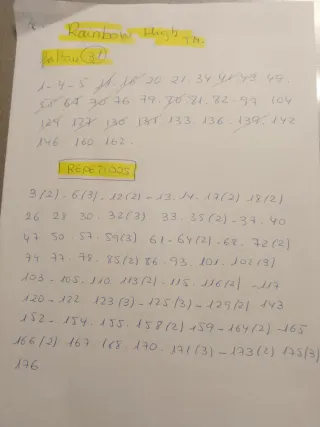 Rainbow High T.M.
faltan (31)
1-4-5 11. 18 20 21. 34 41 43 49.
58 67 70 76 79. 80 81. 82. 99 104
129 127 130 131 133. 136. 139. 142
146. 160 162.
REPETIDOS
3(2) - 6(3) - 12(2) - 13. 14. 17(2) 18(2)
26 28 30. 32(3) 33. 35(2) - 37. 40
47 50. 57. 59(3) 61-64(2) - 68. 72(2)
74 77. 78. 85(2) 86. 93. 101. 102(3)
103-105. 110 113(2). 115. 116(2) -117
120-122. 123(3) - 125(3) - 129(2) 143
152-154. 155. 158(2) 159-164(2) -165
166(2) 167. 168. 170. 171(3) - 173(2) 175(3)
176.